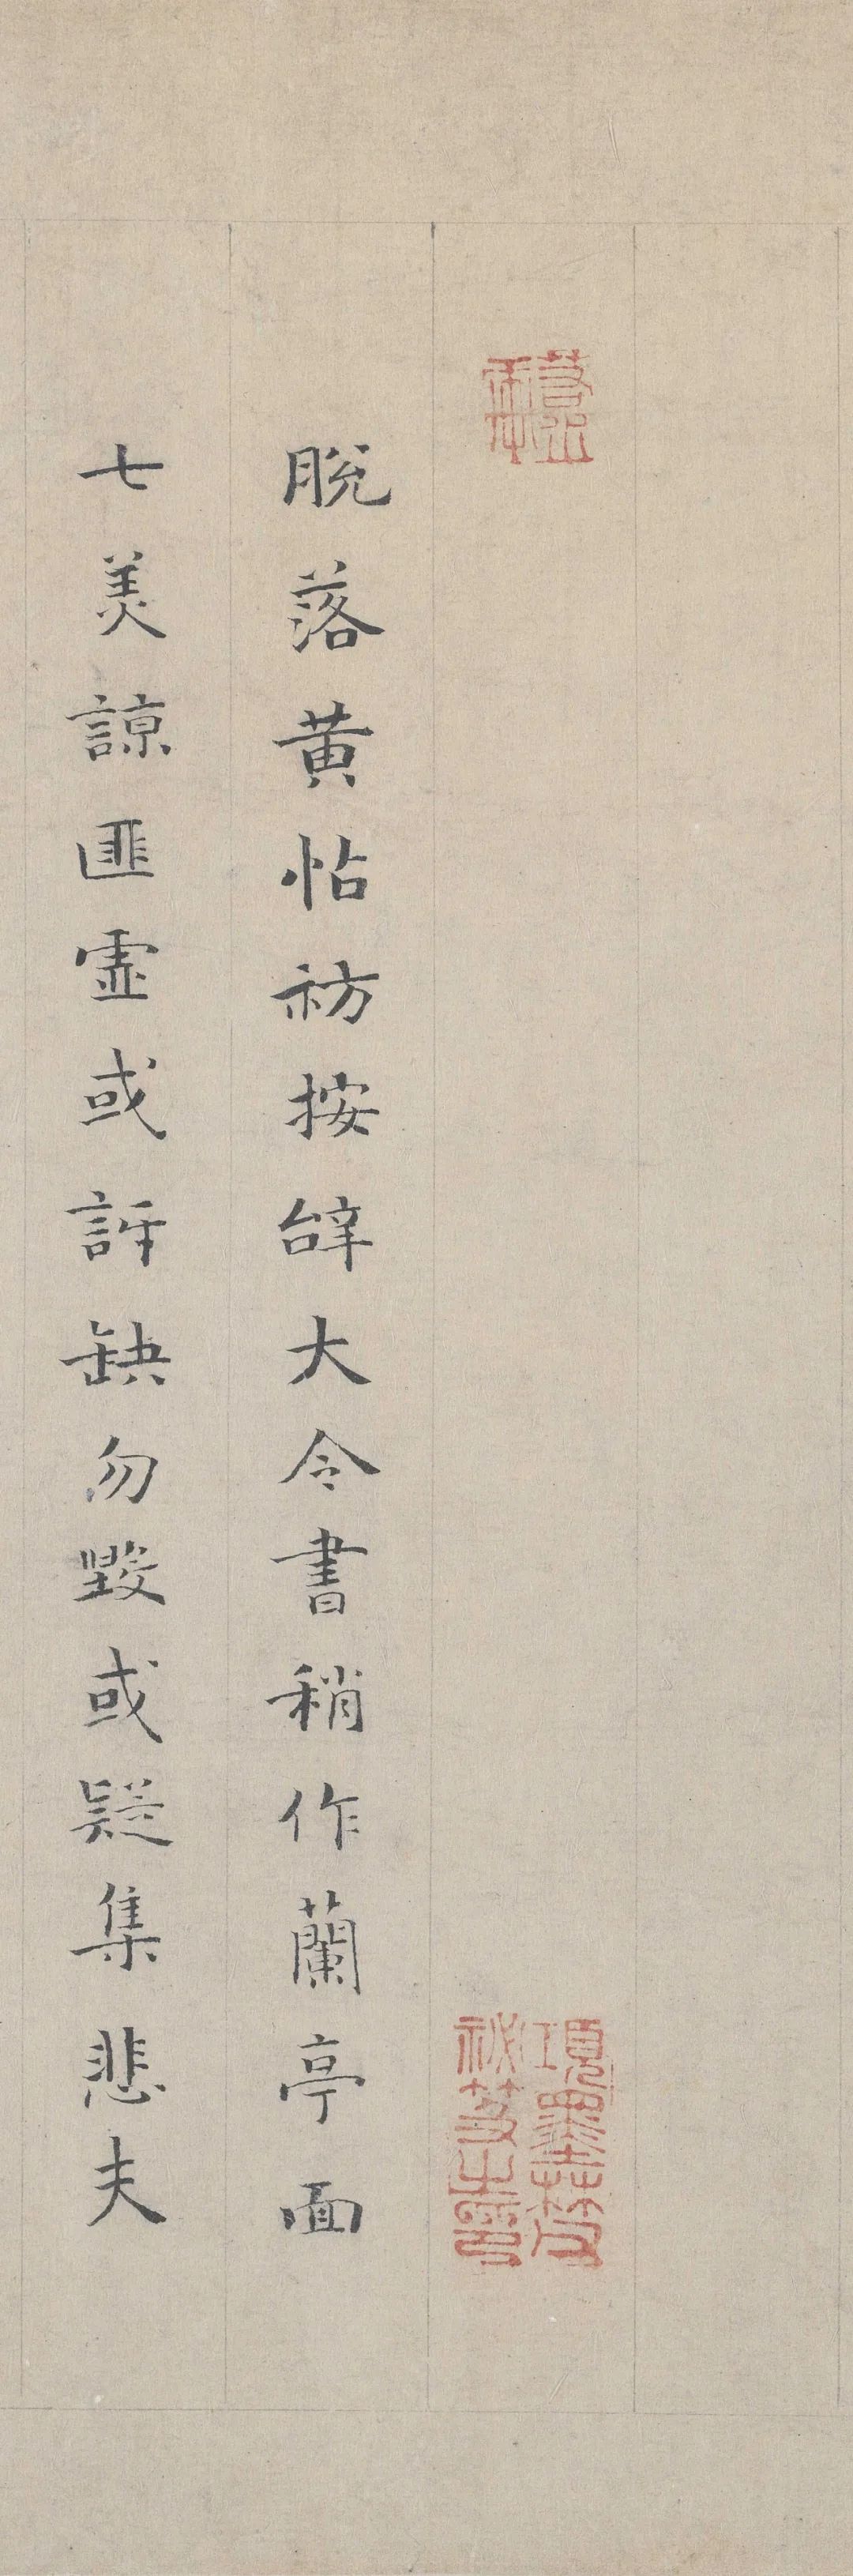 脫落黄帖祊按辝大令書稍作蘭亭面
七美諒匪虛或訝缺勿毀或疑集悲夫